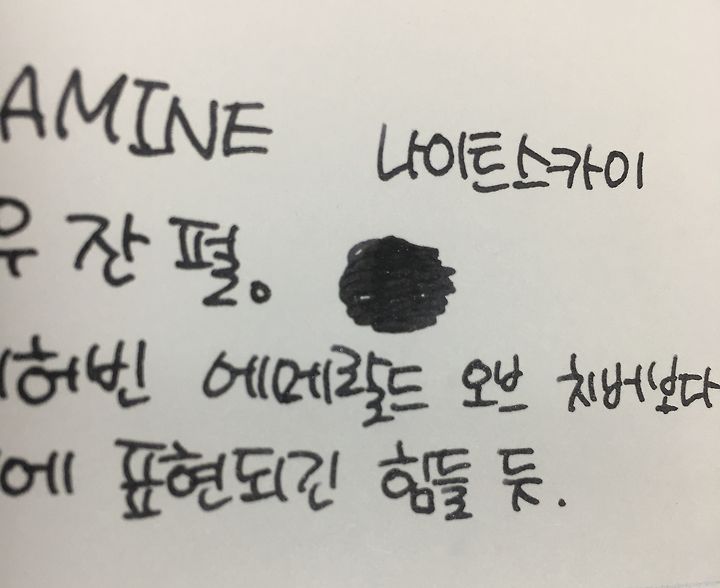 AMINE
나이트스카이
우 잔 펄。
허빈 에메랄드 오브 치버보다
에 표현되긴 힘들 듯.